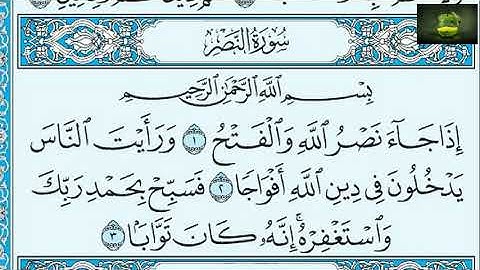 سُورَةُ النَّصْرِ
بِسْمِ اللَّهِ الرَّحْمَٰنِ الرَّحِيمِ
إِذَا جَآءَ نَصْرُ اللَّهِ وَالْفَتْحُ ١ وَرَأَيْتَ النَّاسَ
يَدْخُلُونَ فِى دِينِ اللَّهِ أَفْوَاجًا ٢ فَسَبِّحْ بِحَمْدِ رَبِّكَ
وَاسْتَغْفِرْهُ ۚ إِنَّهُۥ كَانَ تَوَّابًۢا ٣